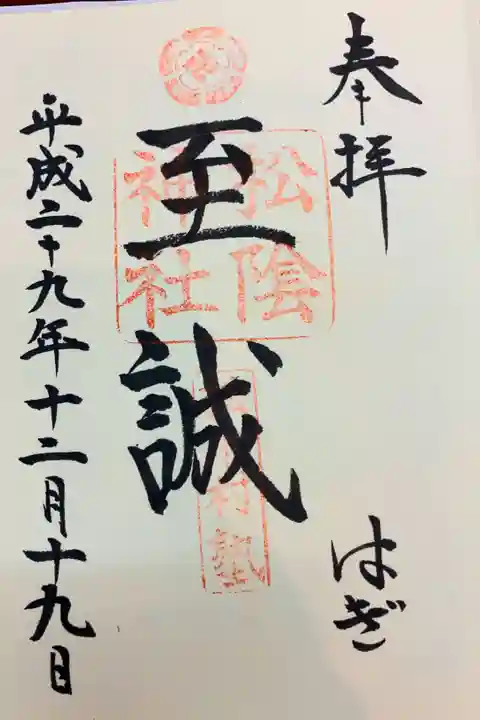 奉拝 はぎ
松陰
神社
至誠
松下村塾
平成二十九年十二月十九日